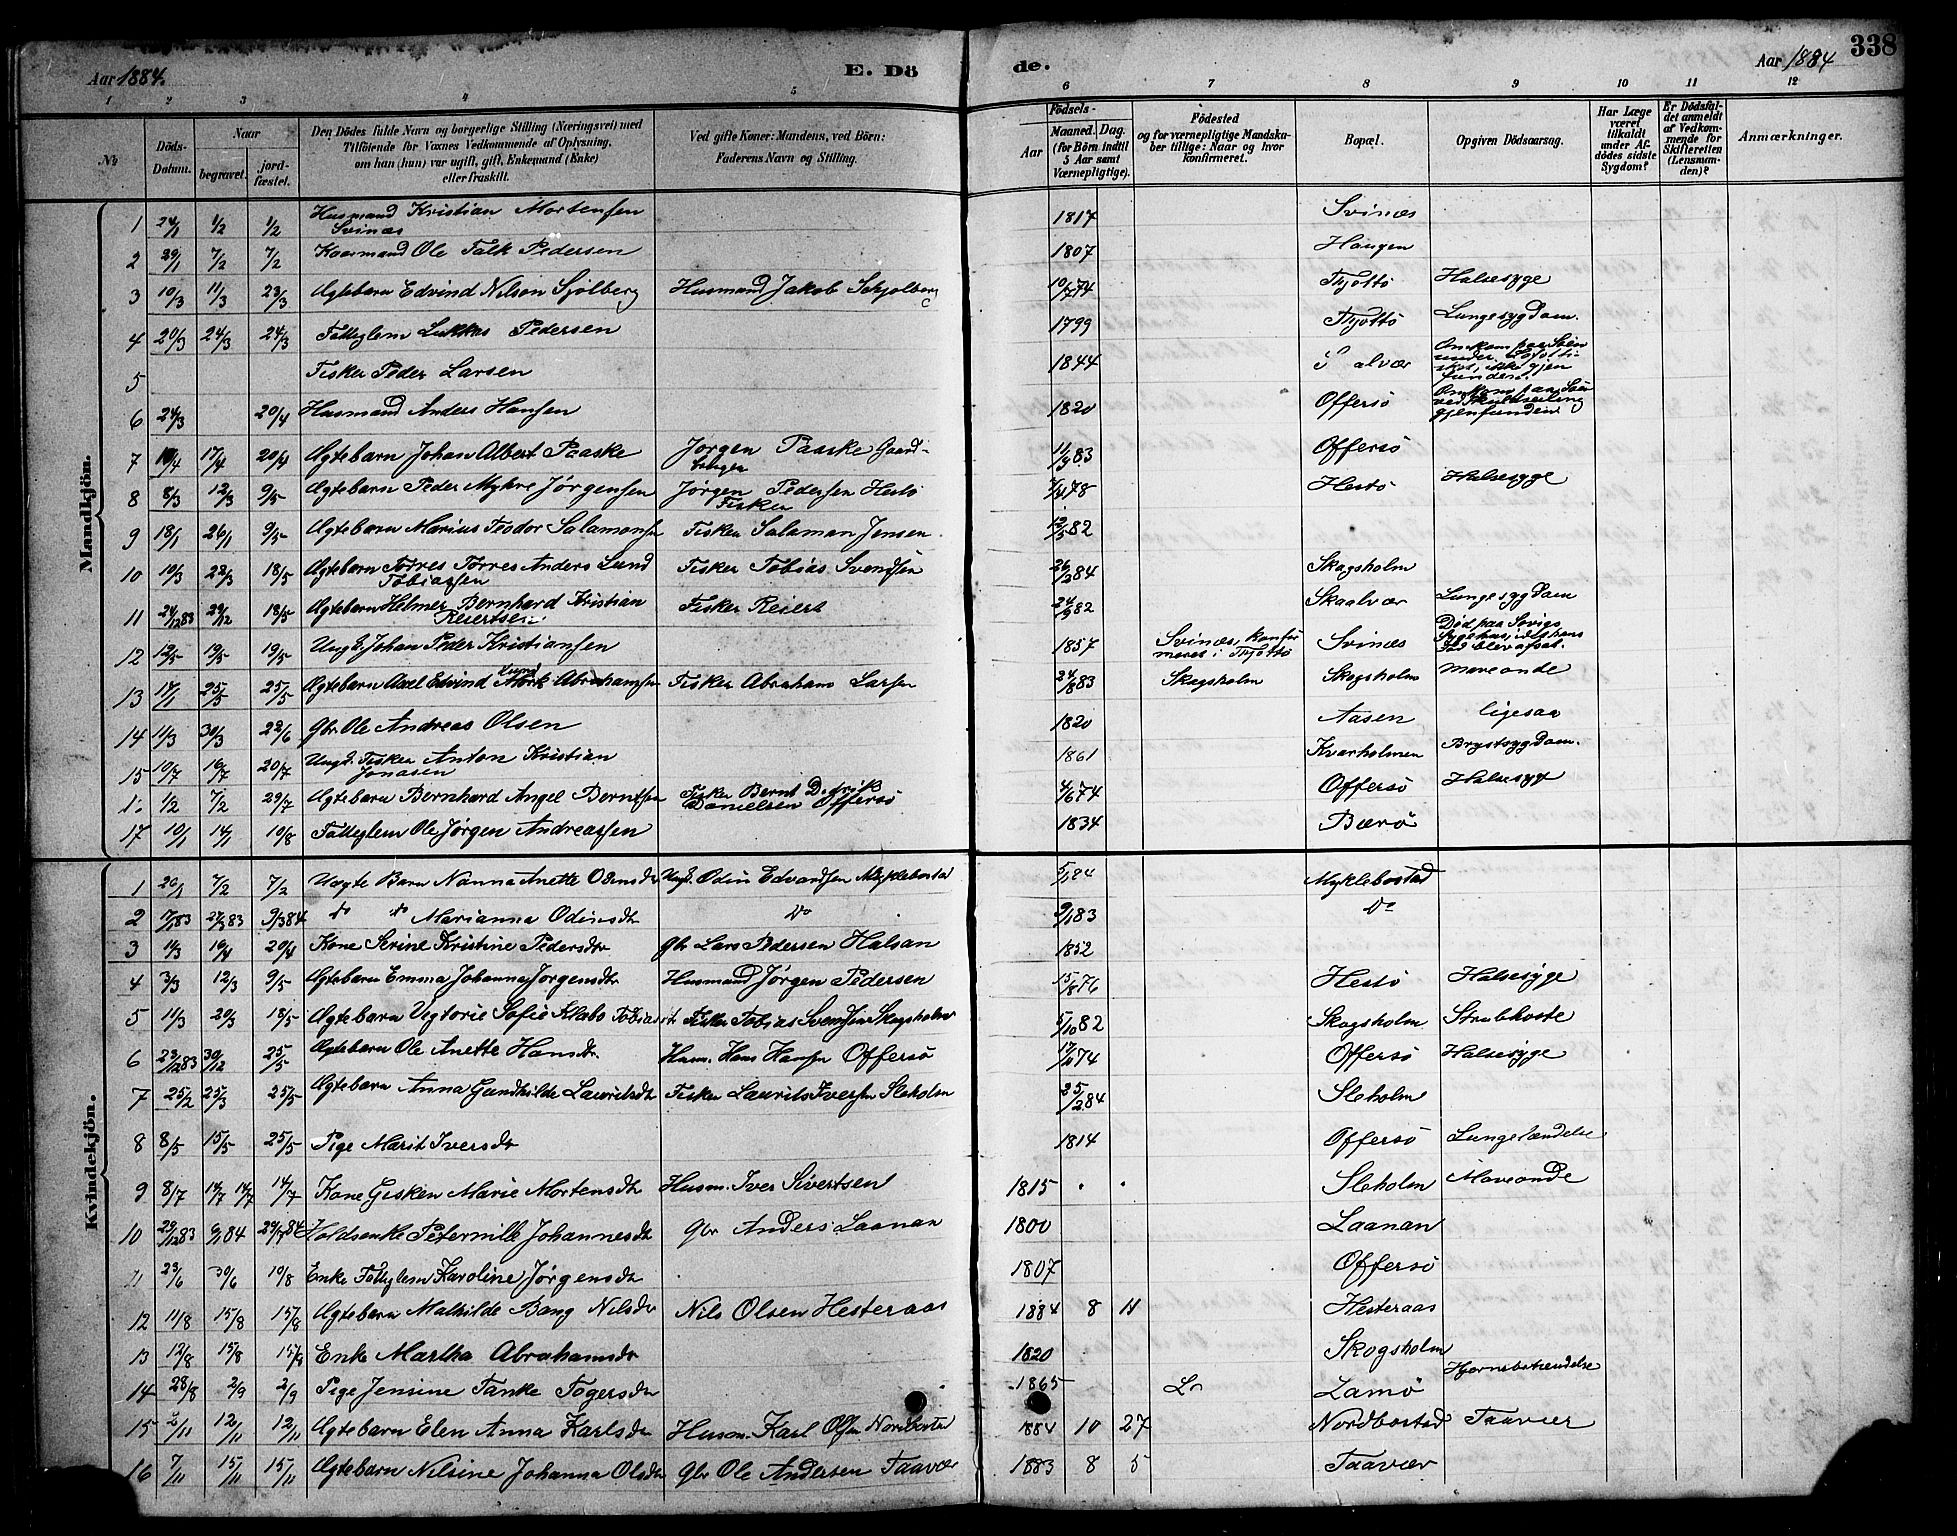 338
Aar 1884. E. Dö de. Aar 1884
1 2 3 4 5 6 7 8 9 10 11 12
No
Döds-Datum.
Naar
begravet.
jord-fæstet.
Den Dödes fulde Navn og borgerlige Stilling (Næringsvei) med
Tilföiende for Voxnes Vedkommende af Oplysning,
om han (hun) var ugift, gift, Enkemand (Enke)
eller fraskilt.
Ved gifte Koner: Mandens, ved Börn:
Faderens Navn og Stilling.
Födsels-
Aar
Maaned. Dag.
(for Börn indtil
5 Aar samt
Værnepligtige).
Födested
og for værnepligtige Mandska-
ber tillige: Naar og hvor
konfirmeret.
Bopæl.
Opgiven Dödsaarsag.
Har Læge
været
tilkaldt
under Af-
dödes sidste
Sygdom?
Er Dödsfal-
det anmeldt
af Vedkom-
mende for
Skifteretten
(Lensman-
den)?
Anmærkninger.
Mandkjön.
1 24/1 1/2 1/2 Husmand Kristian Mortensen 1817 Svinæs
Svinæs
2 29/1 7/2 7/2 Kaarmand Ole Falk Pedersen 1807 Haugen
3 10/3 11/3 23/3 Ægtebarn Edvind Nilson Sjølberg Husmand Jakob Schjølberg 10/7 74 Thjøttø Halsesyge
4 20/3 24/3 24/3 Fattiglem Lukkas Pedersen 1799 Thjøttø Lungesygdom.
5 Fisker Peder Larsen 1844 alvær Omkom paa Søen
under
gjen
funden.
6 24/3 20/4 Husmand Anders Hansen 1820 Offersø Omkom paa Søen
ved
gjenfunden
7 10/4 17/4 20/4 Ægtebarn Johan Albert Paaske Jørgen Paaske Gaard- 11/3 83 Offersø
bruger
8 8/3 12/3 9/5 Ægtebarn Peder Myhre Jørgensen Jørgen Pedersen Hestø 7/4 78 Hestø Halsesyge
Fisker
9 18/1 26/1 9/5 Ægtebarn Marius Teodor Salamonsen Fisker Salaman Jensen 12/5 82
10 10/3 22/3 18/5 Ægtebarn Torres Anders Lund Fisker Tobias Svendsen 26/2 84 Skogsholm
Tobiassen
11 24/12 83 29/12 18/5 Ægtebarn Helmer Bernhard Kristian Fisker Reiert 24/9 82 Skaalvær Lungesygdom
Reiertsen
12 12/5 19/5 19/5 Ungk. Johan Peder Kristiansen 1857 Svinæs, konfir- Svinæs Død paa Søvigs
meret i Thjøttø Sygehus, idet hans
Fod blev afsat.
13 17/1 25/5 25/5 Ægtebarn Axel Edvind Lund Abrahamsen Fisker Abraham Larsen 24/8 83 Skogsholm Skogsholm Maveonde
14 11/3 30/3 22/6 Gbr Ole Andreas Olsen 1820 Aasen ligesaa
15 10/7 16/7 20/7 Ungk. Fisker Anton Kristian 1861 Kvarholmen Brystsygdom.
Jonasen
1/2 7/2 29/7 Ægtebarn Bernhard Angel Berntsen Fisker Bernt Didrik 4/6 74 Offersø Halsesyge
Danielsen Offersø
17 10/1 14/1 10/8 Fattiglem Ole Jørgen Andreassen 1834 Bærø
Kvindekjön.
1 26/1 7/2 7/2 Uægte Barn Nanna Anette Odinsdr Ungk. Odin Edvardsen Myklebostad 5/1 84 Myklebostad
2 17/1 83 27/3 83 9/3 84 do do Marianna Odinsdr Do 9/1 83 Do
3 14/3 19/4 20/4 Kone Serine Kristine Pedersdr Gbr Lars Pedersen Halsan 1852
4 3/3 12/3 9/5 Ægtebarn Emma Johanna Jørgensdr Husmand Jørgen Pedersen 15/8 76 Hestø Halsesyge
5 11/3 20/3 18/5 Ægtebarn Vigtorie Sofie Klabo Tobiasdr Fisker Tobias Svendsen Skogsholm 5/10 82 Skogsholm Strubhoste
6 23/12 83 30/12 25/5 Ægtebarn Ole Anette Hansdr. Husm. Hans Hansen Offersø 74 Offersø Halsesyge
7 25/2 25/3 25/5 Ægtebarn Anna Gundhilde Lauritsdr Fisker Laurits Iversen Sleholm 25/2 84 Sleholm
8 8/5 15/5 25/5 Pige Marit Iversdr 1814 Offersø Lungebetændelse
9 8/7 14/7 14/7 14/7 Kone Gesken Marie Mortensdr Husm. Iver Sivertsen 1815 Sleholm Maveonde
10 29/12 83 6/1 84 Holdsenke Petermille Johannesdr Gbr Anders Laanan 1800 Laanan
11 23/6 30/6 10/8 Enke Fattiglem Karoline Jørgensdr 1807 Offersø
12 11/8 15/8 15/8 Ægtebarn Mathilde Bang Nilsdr Nils Olsen Hesteraas 1884 8 11 Hesteraas
13 12/8 15/8 15/9 Enke Martha Abrahamsdr 1820 Skogsholm
14 28/8 2/9 2/9 Pige Jensine Tanke Togersdr 1865 Lamø Hjernebetændelse
15 2/11 12/11 12/11 Ægtebarn Elen Anna Karlsdr Husm. Karl Olsen Nordbostad 1884 10 27 Nordbostad Taavær
16 7/11 15/11 15/11 Ægtebarn Nilsine Johanna Olsdr Gbr Ole Andersen Taavær 1883 8 5 Taavær